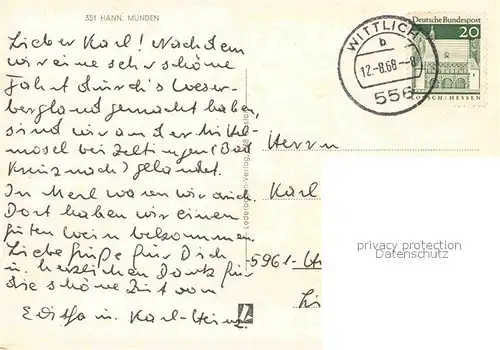 351 HANN. MÜNDEN
Lieber Karl! Nachdem
wir eine sehr schöne
Fahrt durch's Weser-
bergland gemacht haben,
sind wir an der Mittel-
mosel bei Zeltingen (Bad
Kreuznach) gelandet.
In Merl waren wir auch.
Dort haben wir einen
guten Wein bekommen.
Liebe Grüße für Dich
u. herzlichen Dank für
die schöne Zeit von
Editha u. Karl-Heinz.
Deutsche Bundespost
20
LORSCH/HESSEN
WITTLICH
b
12.-8.68--8
556
Herrn
Karl
5961-
privacy protection
Datenschutz